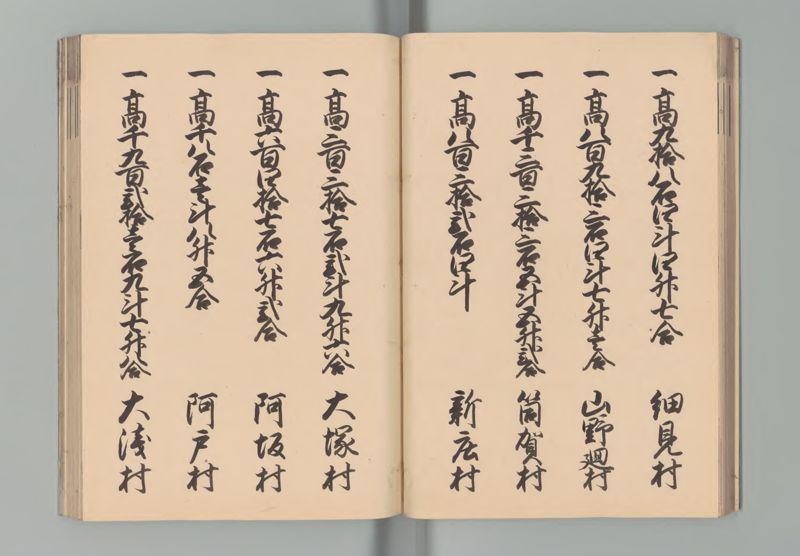 一高九拾八石四斗四升七合 細見村
一高八百九拾三石四斗七升壱合 山野廻村
一高千三百三拾三石五斗五升弐合 筒賀村
一高八百三拾弐石四斗 新庄村
一高三百三拾七石弐斗九升六合 大塚村
一高六百四拾七石六升弐合 阿坂村
一高千八石壱斗八升五合 阿戸村
一高千九百弐拾壱石九斗七升八合 大浅村